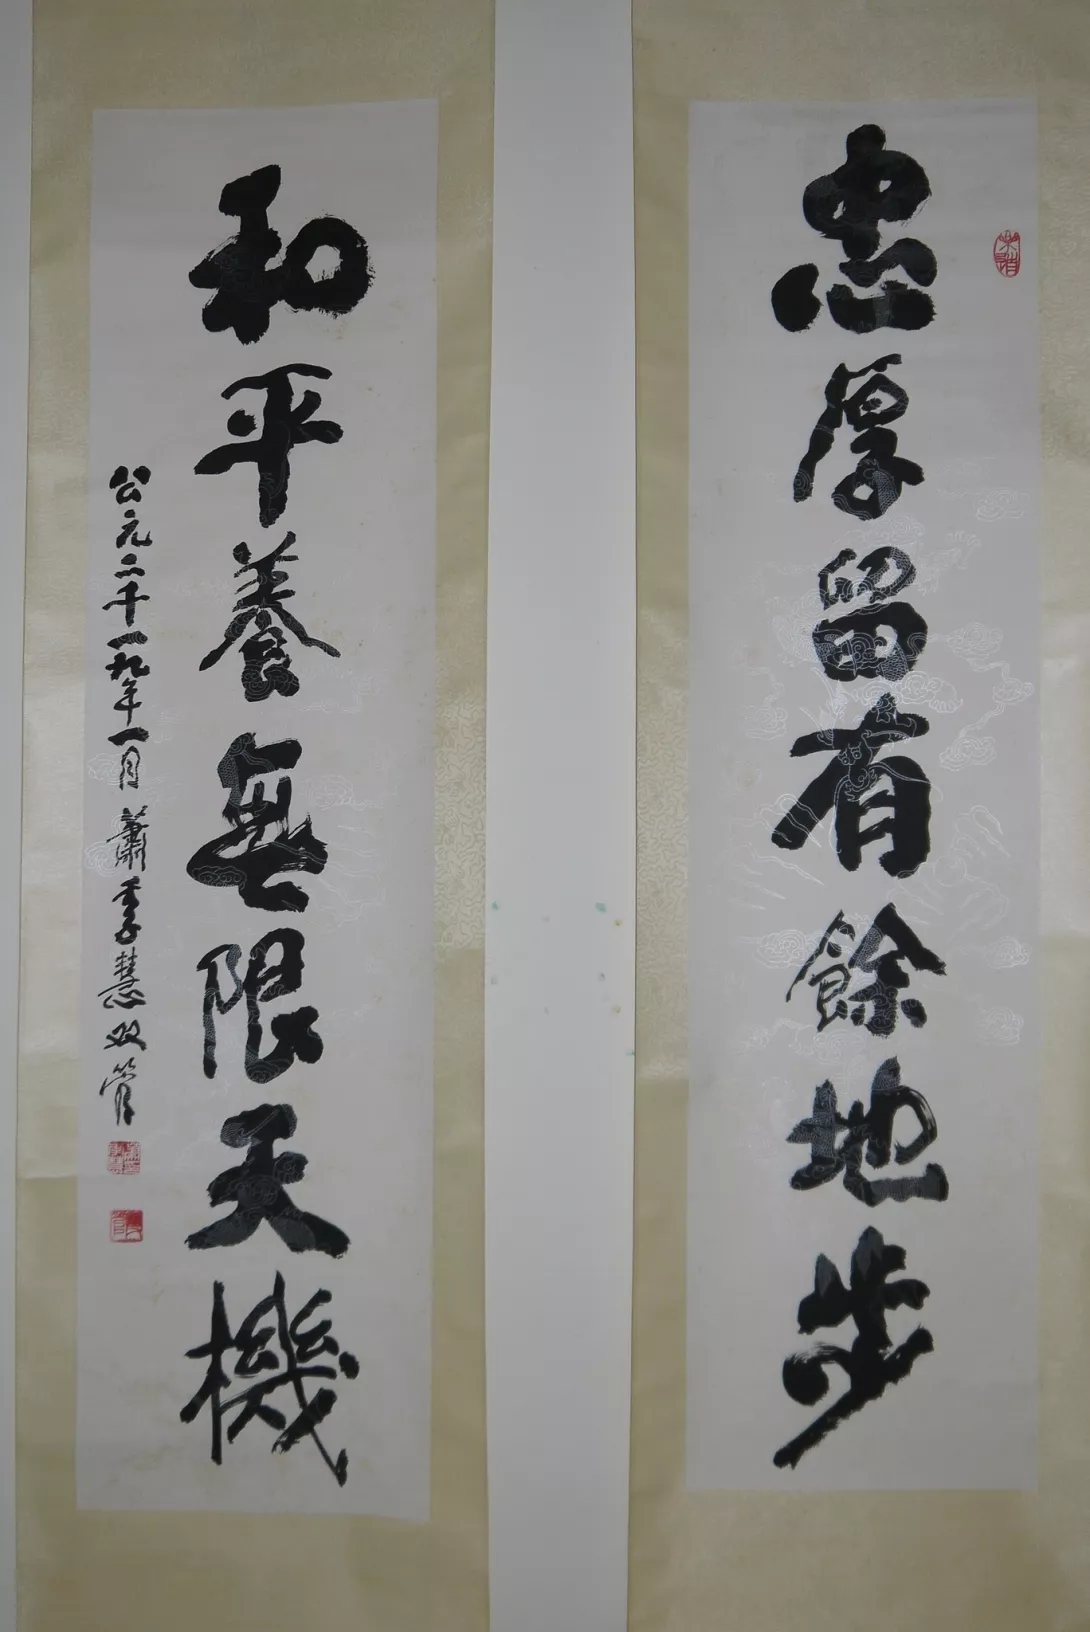 忠厚留有餘地步
和平養無限天機
公元二千一九年一月蕭季慧双管